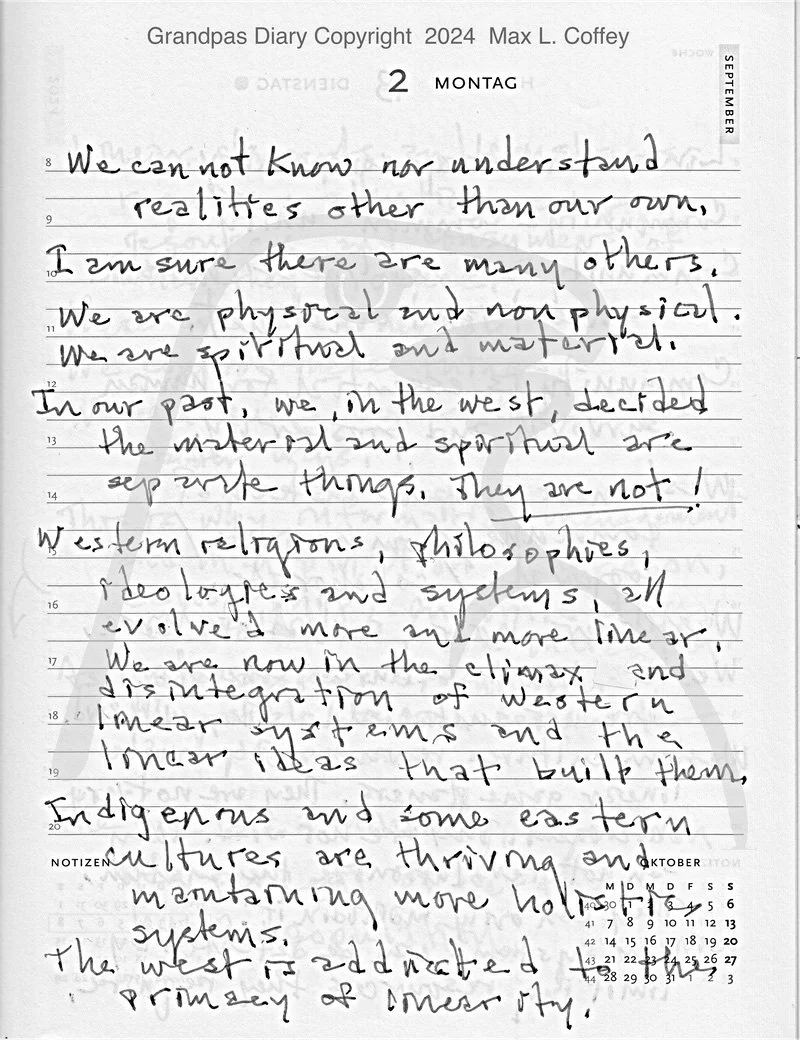 Grandpas Diary Copyright 2024 Max L. Coffey
2 MONTAG
SEPTEMBER
8 We can not know nor understand
realities other than our own,
9
I am sure there are many others.
10
We are physical and non physical.
11
We are spiritual and material.
12
In our past, we, in the west, decided
13 the material and spiritual are
14 separate things. They are not!
Western religions, philosophies,
15
ideologies and systems, all
16
evolved more and more linear.
17 We are now in the climax and
disintegration of western
18 linear systems and the
19 linear ideas that built them,
Indigenous and some eastern
20
NOTIZEN cultures are thriving and OKTOBER
maintaining more holistic
systems.
The west is addicated to the
primacy of linearity.
M D M D F S S
40 30 1 2 3 4 5 6
41 7 8 9 10 11 12 13
42 14 15 16 17 18 19 20
43 21 22 23 24 25 26 27
44 28 29 30 31 1 2 3